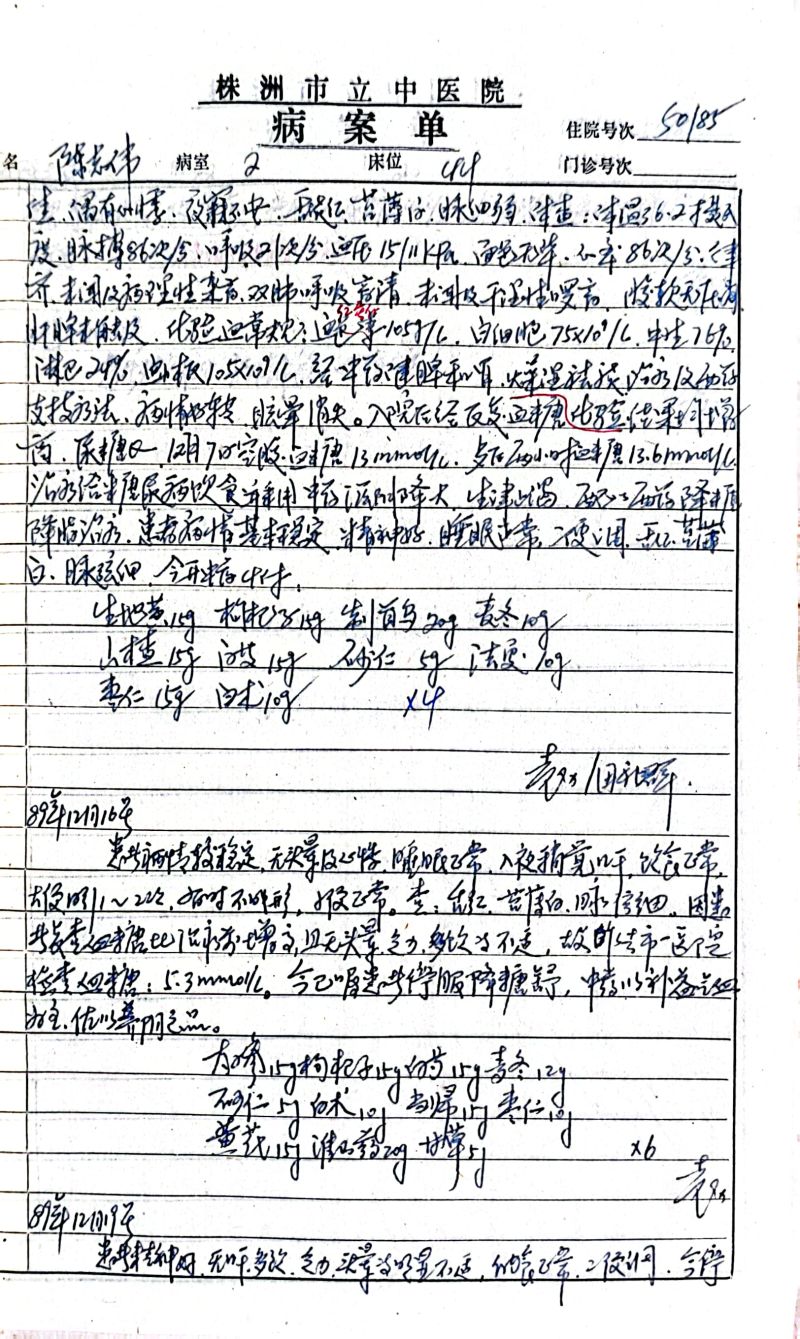 株洲市立中医院
病案单
住院号次 50185
名 陈志伟 病室 2 床位 44 门诊号次
佳,偶有心悸,夜寐不安,舌淡红苔薄白,脉细弱,体查:体温36.2摄氏
度,脉搏86次/分,呼吸21次/分,血压15/11kPa,心率86次/分,律
齐,未闻及病理性杂音,双肺呼吸音清,未闻及干湿性啰音,腹软无压痛
肝脾未触及,化验血常规:红蛋白105g/L,白细胞75x10⁹/L,中性76%
淋巴24%,血小板105x10⁹/L,经中药健脾和胃,燥湿祛痰治疗及西药
支持疗法,病情好转,眩晕消失。入院后经反复血糖化验结果均增
高,尿糖,12月7日空腹血糖13mmol/L,餐后两小时血糖13.6mmol/L
治疗给糖尿病饮食并采用中药,生津止渴,配以西药降糖
降脂治疗,患者病情基本稳定,精神好,睡眠正常,二便调,舌红,苔薄
白,脉弦细,今开中药4付。
生地黄15g 枸杞子15g 制首乌20g 麦冬10g
山楂15g 15g 砂仁5g 法夏10g
枣仁15g 白术10g x4
袁
89年12月16号
患者病情较稳定,无头晕及心悸,睡眠正常,入夜稍觉口干,饮食正常,
大便日1~2次,有时不成形,小便正常。查:舌红,苔薄白,脉弦细。因患
者复查血糖比治疗前增高,且无头晕,乏力,多饮等不适,故送市一医院
检查血糖:5.3mmol/L。今已嘱患者停服降糖药,中药以补益气血
为主,佐以养阴之品。
15g 枸杞子15g 白芍15g 麦冬12g
砂仁5g 白术10g 当归15g 枣仁10g
黄芪15g 淮山药20g 甘草5g x6
袁
89年12月19号
患者精神好,无口干多饮,乏力,头晕等明显不适,饮食正常,二便调,今停